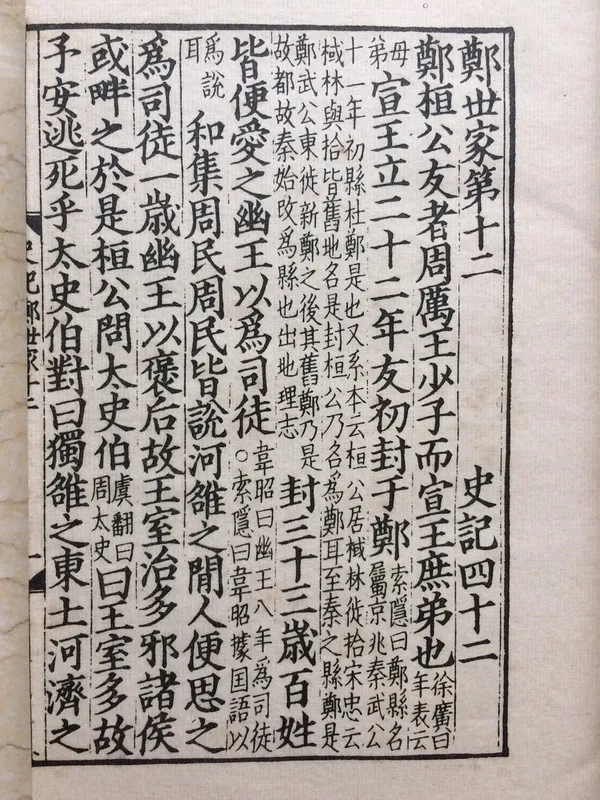 鄭世家第十二　史記四十二
鄭桓公友者周厲王少子而宣王庶弟也徐廣曰年表云
母弟宣王立二十二年友初封于鄭索隱曰鄭縣名屬京兆秦武公
十一年初縣杜鄭是也又系本云桓公居棫林徙拾宋忠云
棫林與拾皆舊地名是封桓公乃名為鄭耳至秦之縣鄭是
鄭武公東徙新鄭之後其舊鄭乃是故都故秦始改爲縣也出地理志封三十三歲百姓
皆便愛之幽王以爲司徒韋昭曰幽王八年為司徒○索隱曰韋昭據国語以
爲說耳和集周民周民皆說河雒之閒人便思之
爲司徒一歲幽王以褒后故王室治多邪諸侯
或畔之於是桓公問太史伯虞翻曰周太史曰王室多故
予安逃死乎太史伯對曰獨雒之東土河濟之
史記鄭世家十二